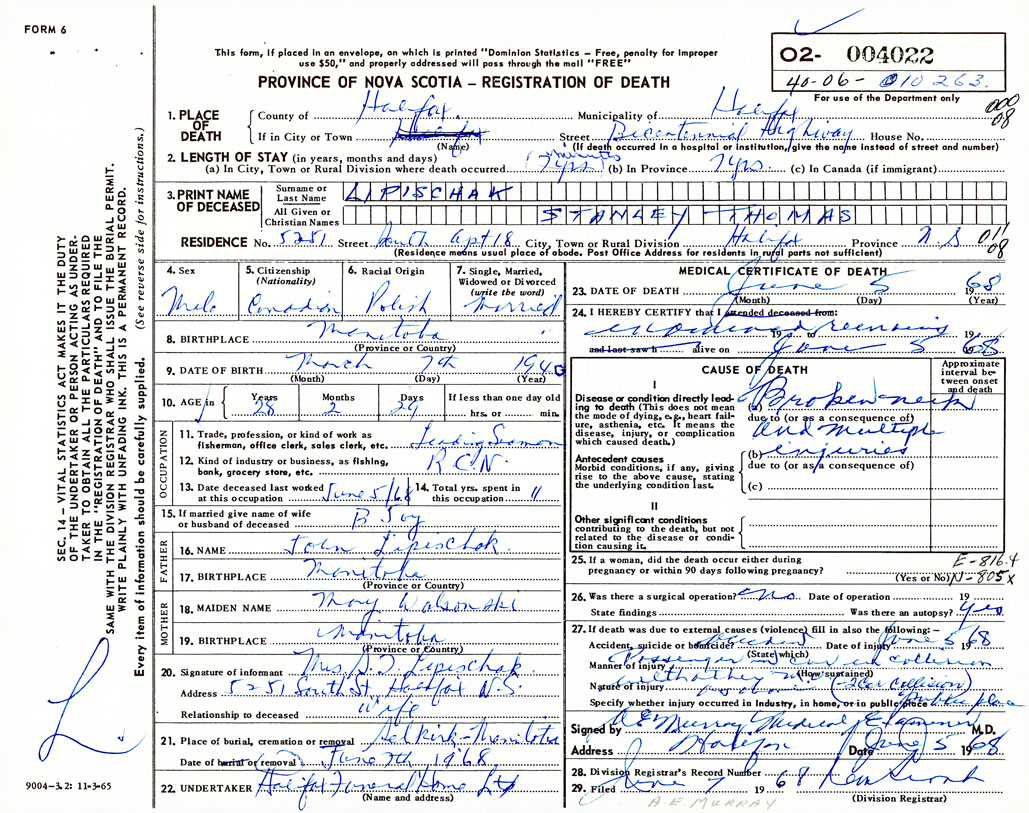 FORM 6
This form, if placed in an envelope, on which is printed "Dominion Statistics – Free, penalty for improper
use $50," and properly addressed will pass through the mail "FREE"
PROVINCE OF NOVA SCOTIA – REGISTRATION OF DEATH
O2- 004022
40-06- 010263.
For use of the Department only
000
08
1. PLACE OF DEATH
County of Halifax. Municipality of Halifax
If in City or Town Halifax Street Bicentennial Highway House No.
(Name) (If death occurred in a hospital or institution, give the name instead of street and number)
2. LENGTH OF STAY (in years, months and days)
(a) In City, Town or Rural Division where death occurred minutes 7 yrs. (b) In Province 7 yrs. (c) In Canada (if immigrant)
3. PRINT NAME OF DECEASED
Surname or Last Name LIPISCHAK
All Given or Christian Names STANLEY THOMAS
RESIDENCE No. 5251 Street South Apt 18 City, Town or Rural Division Halifax Province N.S.
011
08
(Residence means usual place of abode. Post Office Address for residents in rural parts not sufficient)
4. Sex Male
5. Citizenship (Nationality) Canadian
6. Racial Origin Polish
7. Single, Married, Widowed or Divorced (write the word) Married
8. BIRTHPLACE Manitoba
(Province or Country)
9. DATE OF BIRTH March 7th 1940
(Month) (Day) (Year)
10. AGE in Years 28 Months 2 Days 29 If less than one day old hrs. or min.
OCCUPATION
11. Trade, profession, or kind of work as fisherman, office clerk, sales clerk, etc. Leading Seaman
12. Kind of industry or business, as fishing, bank, grocery store, etc. R.C.N.
13. Date deceased last worked at this occupation June 5/68 14. Total yrs. spent in this occupation 11
15. If married give name of wife or husband of deceased B. Joy
FATHER
16. NAME John Lipischak.
17. BIRTHPLACE Manitoba
(Province or Country)
MOTHER
18. MAIDEN NAME Mary
19. BIRTHPLACE Manitoba
(Province or Country)
20. Signature of informant Mrs. Lipischak.
Address 5251 South St, Halifax N.S.
Relationship to deceased wife
21. Place of burial, cremation or removal Selkirk-Manitoba
Date of burial or removal June 7th 1968
22. UNDERTAKER Halifax Funeral Home Ltd
(Name and address)
MEDICAL CERTIFICATE OF DEATH
23. DATE OF DEATH June 5 1968
(Month) (Day) (Year)
24. I HEREBY CERTIFY that I attended deceased from:
examined remains 19 19
and last saw h alive on June 5 1968
CAUSE OF DEATH
Approximate interval between onset and death
I
Disease or condition directly leading to death (This does not mean the mode of dying, e.g., heart failure, asthenia, etc. It means the disease, injury, or complication which caused death.)
(a) Broken neck
due to (or as a consequence of)
and multiple
Antecedent causes
Morbid conditions, if any, giving rise to the above cause, stating the underlying condition last.
(b) injuries
due to (or as a consequence of)
(c)
II
Other significant conditions contributing to the death, but not related to the disease or condition causing it.
25. If a woman, did the death occur either during pregnancy or within 90 days following pregnancy? (Yes or No)
E-816.4
N-805x
26. Was there a surgical operation? No. Date of operation 19
State findings Was there an autopsy? Yes
27. If death was due to external causes (violence) fill in also the following: –
Accident, suicide or homicide? Accident Date of injury June 5 1968
(State which)
Manner of injury Passenger in car in collision
with other (How sustained)
Nature of injury as above (2 car collision)
Specify whether injury occurred in industry, in home, or in public place Public place
Signed by A E Murray Medical Examiner M.D.
Address Halifax Date June 5 1968.
28. Division Registrar's Record Number
29. Filed June 7 1968
(Division Registrar)
A.E. MURRAY
SEC. 14 – VITAL STATISTICS ACT MAKES IT THE DUTY
OF THE UNDERTAKER OR PERSON ACTING AS UNDERTAKER
TO OBTAIN ALL THE PARTICULARS REQUIRED
IN THE "REGISTRATION OF DEATH" AND TO FILE THE
SAME WITH THE DIVISION REGISTRAR WHO SHALL ISSUE THE BURIAL PERMIT.
WRITE PLAINLY WITH UNFADING INK. THIS IS A PERMANENT RECORD.
Every item of information should be carefully supplied. (See reverse side for instructions.)
9004-3.2: 11-3-65